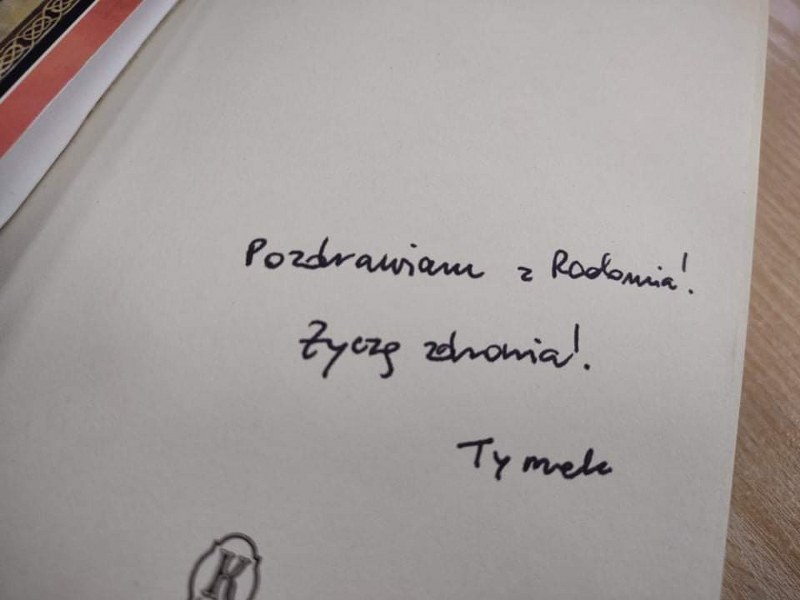 Pozdrawiam z Radomia!
Życzę zdrowia!
Tymek
K